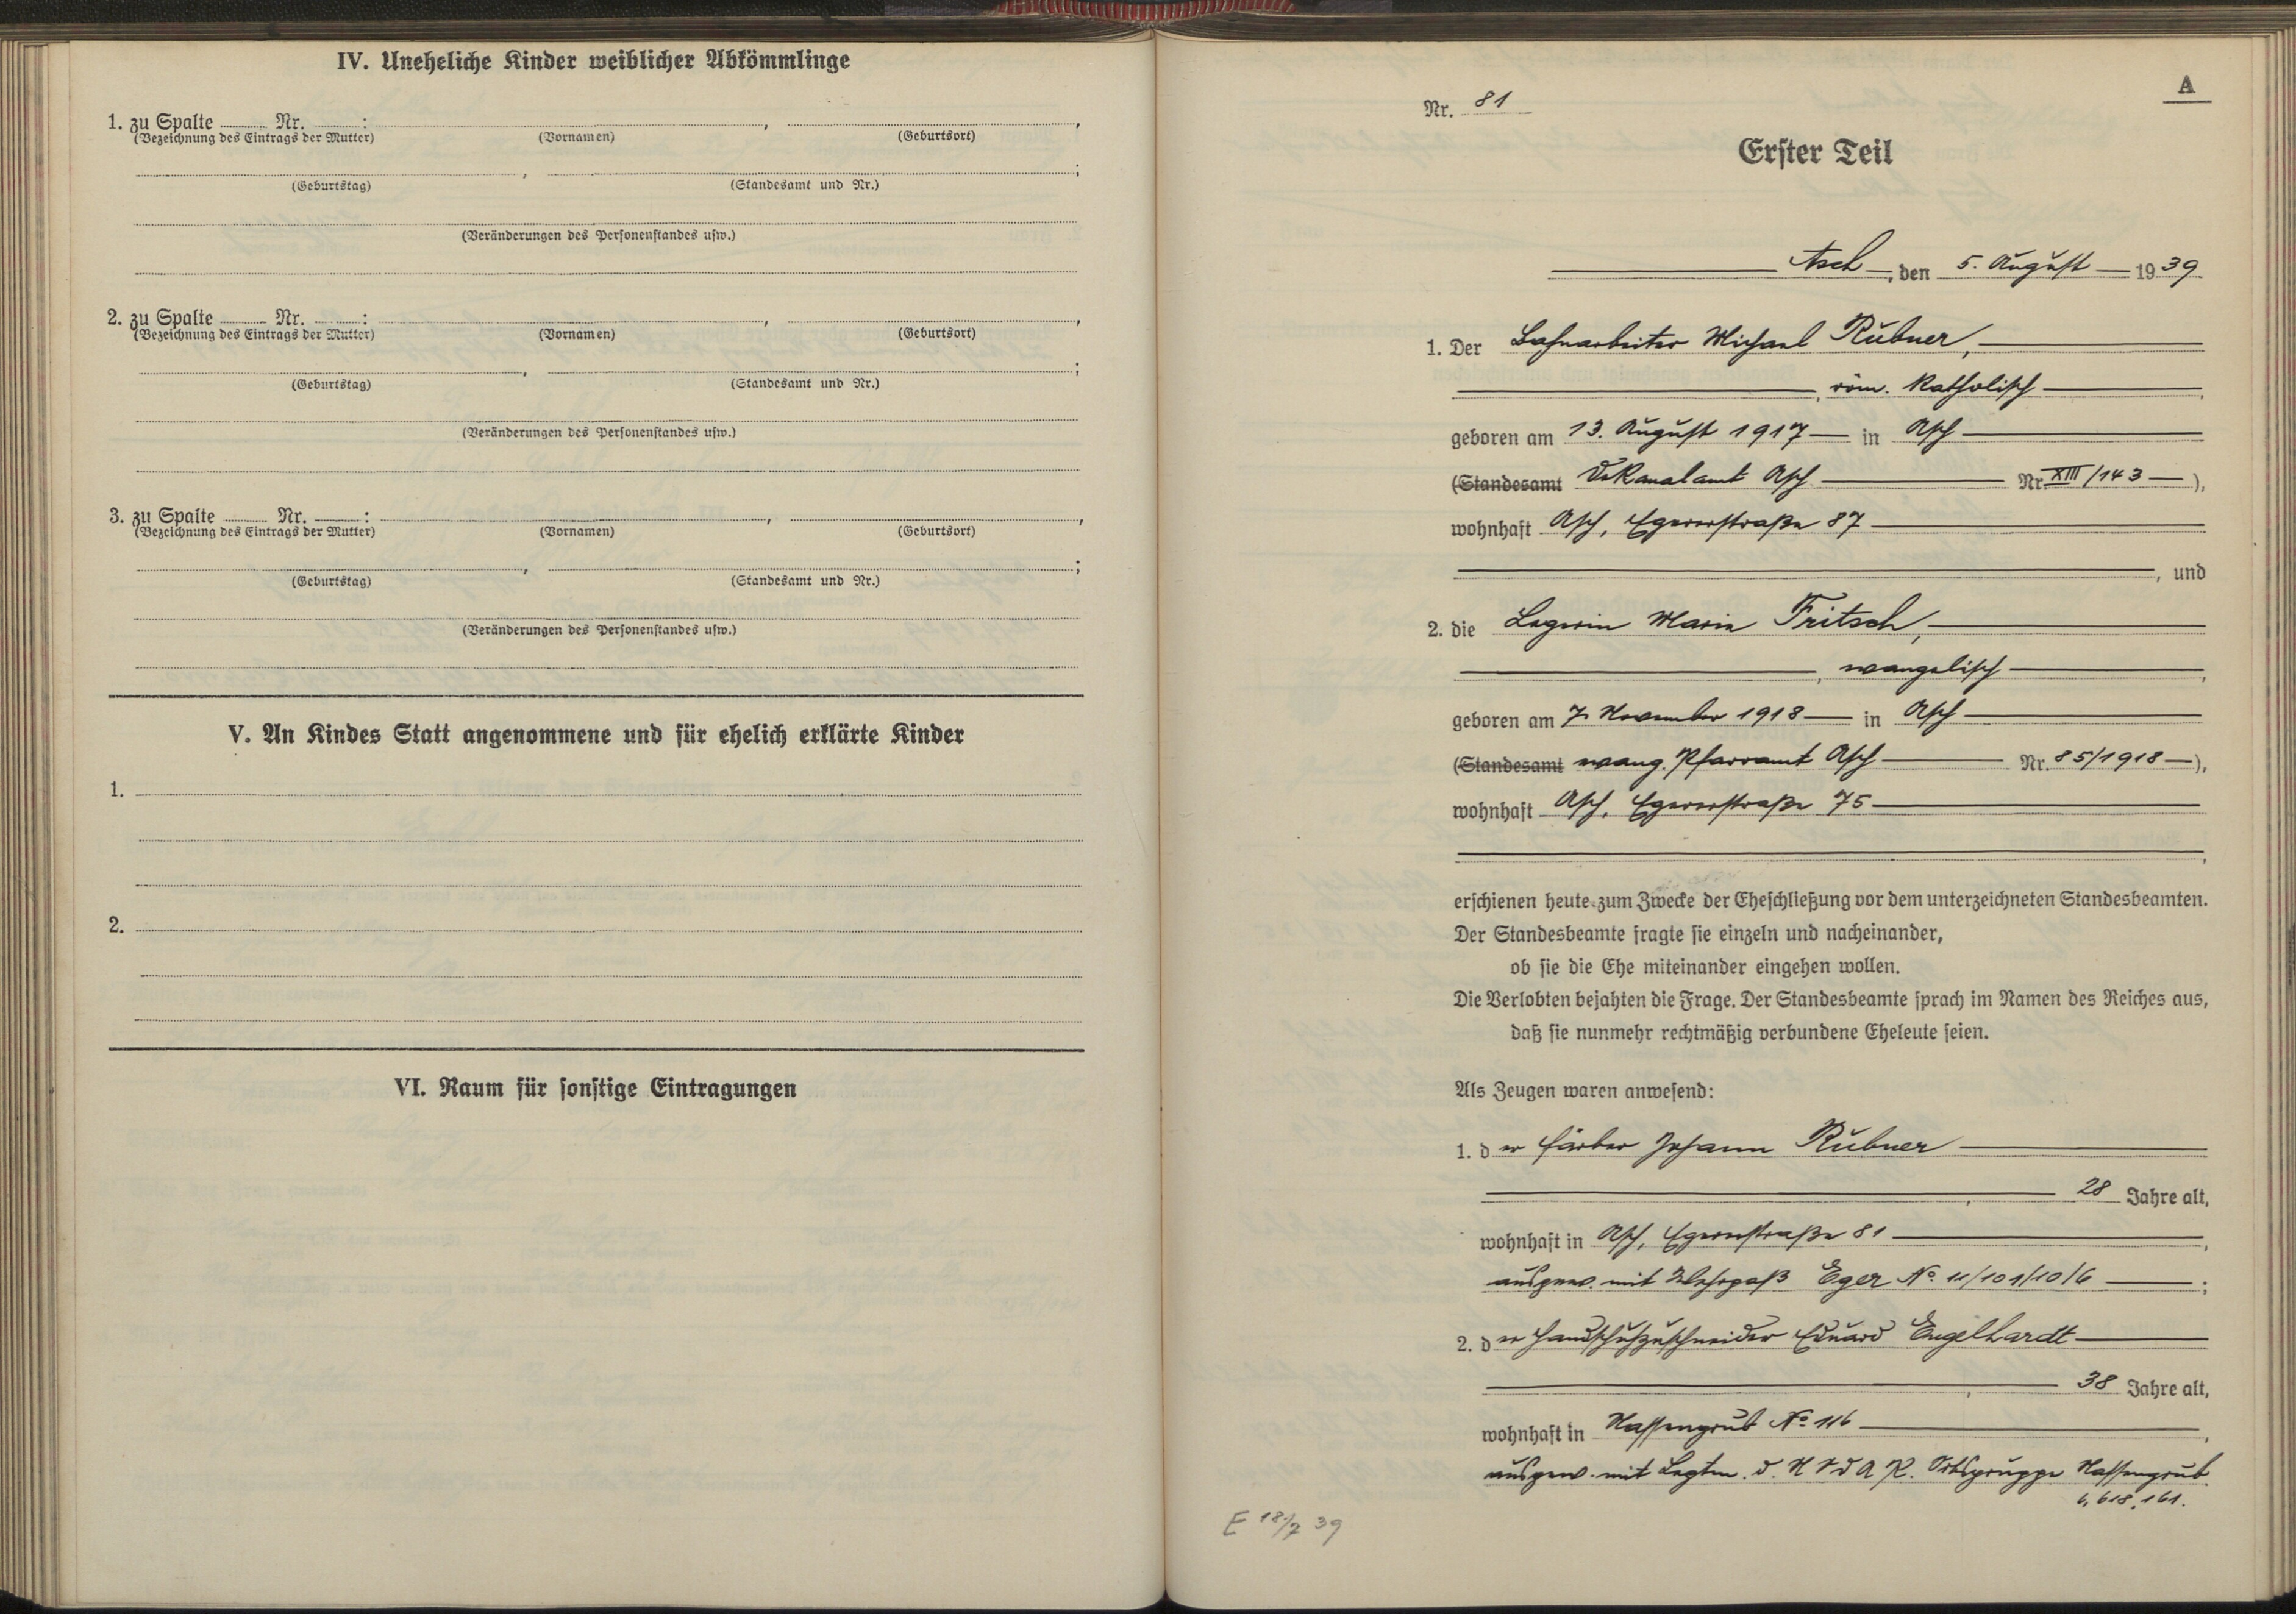 IV. Uneheliche Kinder weiblicher Abkömmlinge
1. zu Spalte ........ Nr. ........: , ,
(Bezeichnung des Eintrags der Mutter) (Vornamen) (Geburtsort)
, ;
(Geburtstag) (Standesamt und Nr.)
(Veränderungen des Personenstandes usw.)
2. zu Spalte ........ Nr. ........: , ,
(Bezeichnung des Eintrags der Mutter) (Vornamen) (Geburtsort)
, ;
(Geburtstag) (Standesamt und Nr.)
(Veränderungen des Personenstandes usw.)
3. zu Spalte ........ Nr. ........: , ,
(Bezeichnung des Eintrags der Mutter) (Vornamen) (Geburtsort)
, ;
(Geburtstag) (Standesamt und Nr.)
(Veränderungen des Personenstandes usw.)
V. An Kindes Statt angenommene und für ehelich erklärte Kinder
1.
2.
VI. Raum für sonstige Eintragungen
A
Nr. 81
Erster Teil
Asch, den 5. August 1939
1. Der Michael Rubner,
, röm. katholisch,
geboren am 13. August 1917 in Asch
(Standesamt Dekanalamt Asch Nr. XIII/143),
wohnhaft Asch, Egererstraße 87
, und
2. die Legerin Maria Fritsch,
, evangelisch,
geboren am 7. November 1918 in Asch
(Standesamt evang. Pfarramt Asch Nr. 85/1918),
wohnhaft Asch, Egererstraße 75
,
erschienen heute zum Zwecke der Eheschließung vor dem unterzeichneten Standesbeamten.
Der Standesbeamte fragte sie einzeln und nacheinander,
ob sie die Ehe miteinander eingehen wollen.
Die Verlobten bejahten die Frage. Der Standesbeamte sprach im Namen des Reiches aus,
daß sie nunmehr rechtmäßig verbundene Eheleute seien.
Als Zeugen waren anwesend:
1. der Färber Johann Rubner
, 28 Jahre alt,
wohnhaft in Asch, Egererstraße 81,
ausgew. mit Wehrpaß Eger No. 11/101/10/6;
2. der Handschuhzuschneider Eduard Engelhardt
, 38 Jahre alt,
wohnhaft in Nassengrub No. 116,
ausgew. mit d. Ortsgruppe Nassengrub.
6,618,161.
E 18/7 39